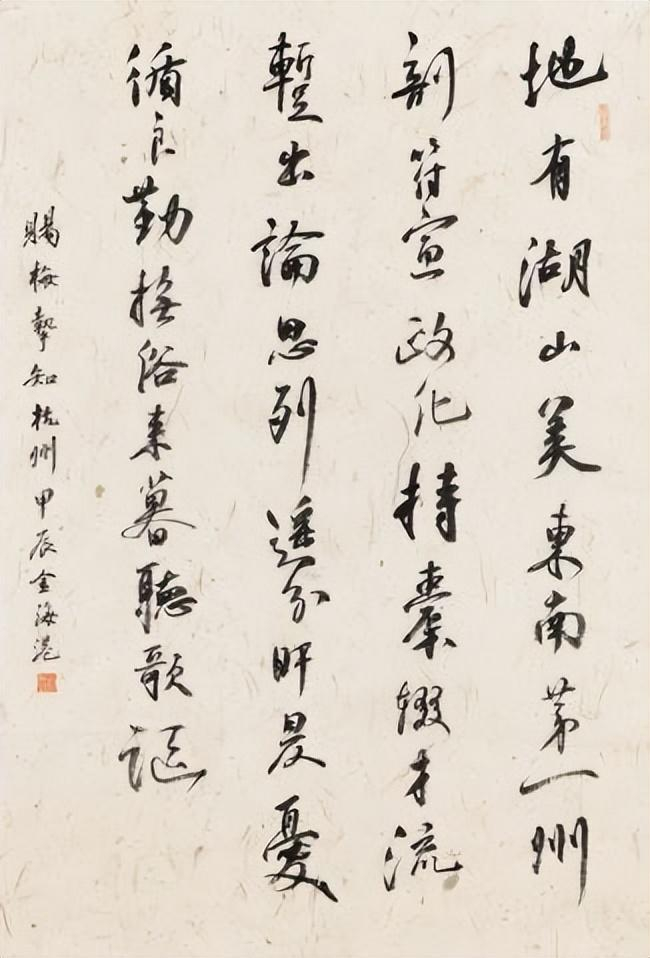 地有湖山美東南第一州
剖符宣政化持橐輟才流
蹔出論思列遥分旰昃憂
循良勤撫俗来暮聽歌謳
賜梅摯知杭州甲辰金海港